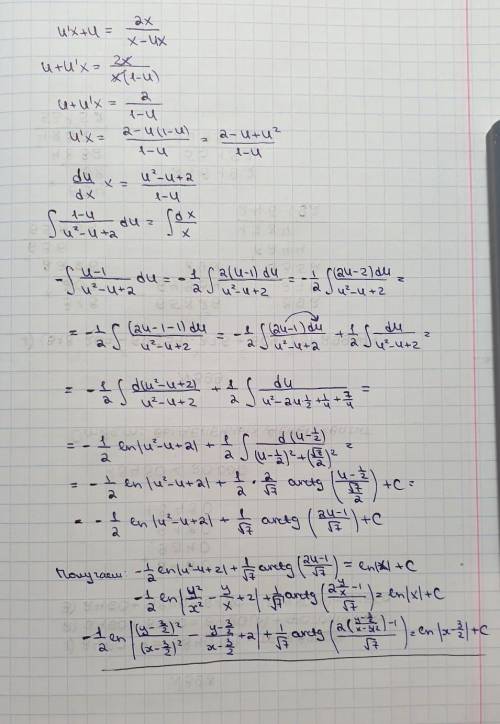 u'x+u = 2x/(x-ux)
u+u'x = 2x/(x(1-u))
u+u'x = 2/(1-u)
u'x = (2-u(1-u))/(1-u) = (2-u+u²)/(1-u)
du/dx x = (u²-u+2)/(1-u)
∫ (1-u)/(u²-u+2) du = ∫ dx/x
-∫ (u-1)/(u²-u+2) du = -1/2 ∫ (2(u-1)du)/(u²-u+2) = -1/2 ∫ ((2u-2)du)/(u²-u+2) =
= -1/2 ∫ ((2u-1-1)du)/(u²-u+2) = -1/2 ∫ ((2u-1)du)/(u²-u+2) + 1/2 ∫ du/(u²-u+2) =
= -1/2 ∫ d(u²-u+2)/(u²-u+2) + 1/2 ∫ du/(u²-2u 1/2 + 1/4 + 7/4) =
= -1/2 ln|u²-u+2| + 1/2 ∫ d(u-1/2)/((u-1/2)²+(√7/2)²) =
= -1/2 ln|u²-u+2| + 1/2 · 2/√7 arctg ((u-1/2)/(√7/2)) + C =
= -1/2 ln|u²-u+2| + 1/√7 arctg ((2u-1)/√7) + C
Получаем: -1/2 ln|u²-u+2| + 1/√7 arctg ((2u-1)/√7) = ln|x| + C
-1/2 ln|y²/x² - y/x + 2| + 1/√7 arctg ((2 y/x -1)/√7) = ln|x| + C